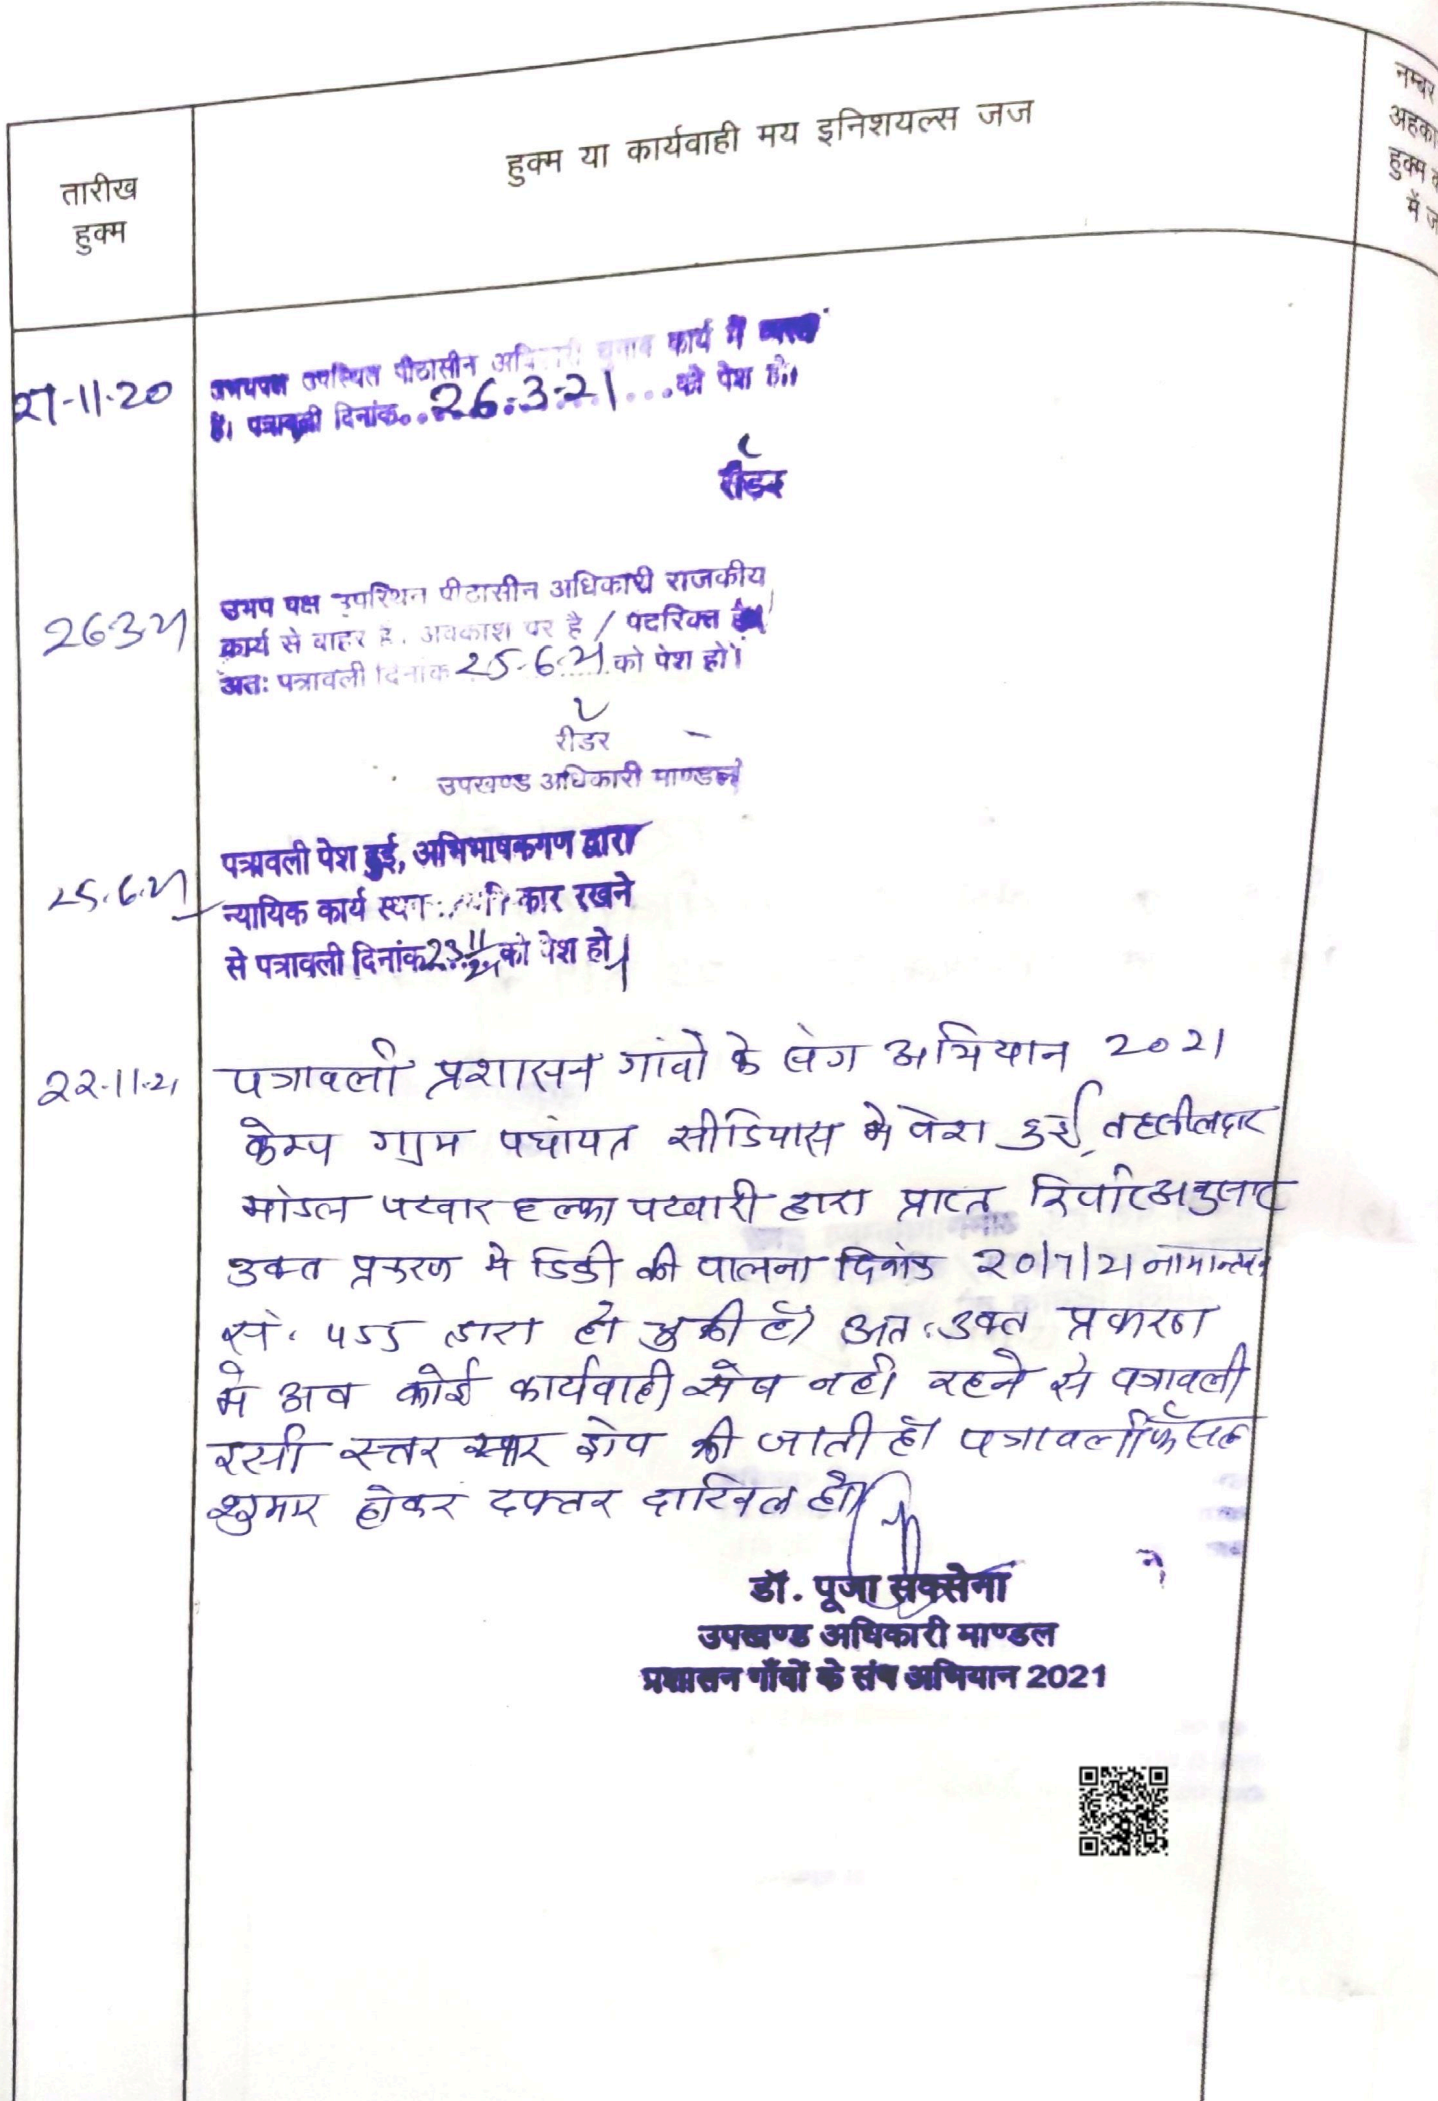 तारीख
हुक्म
हुक्म या कार्यवाही मय इनिशयल्स जज
नम्बर
अहका
हुक्म
में ज
27-11-20
उभयपक्ष उपस्थित पीठासीन अधिकारी चुनाव कार्य में व्यस्त
है। पत्रावली दिनांक 26.3-21 को पेश हो।
रीडर
26-3-21
उभय पक्ष उपस्थित पीठासीन अधिकारी राजकीय
कार्य से बाहर है. अवकाश पर है / पदरिक्त है
अतः पत्रावली दिनांक 25-6-21 को पेश हो।
रीडर
उपखण्ड अधिकारी माण्डल
25.6.21
पत्रावली पेश हुई, अभिभाषकगण द्वारा
न्यायिक कार्य कार रखने
से पत्रावली दिनांक 23/11/21 को पेश हो।
22-11-21
पत्रावली प्रशासन गांवो के संग अभियान 2021
केम्प ग्राम पचांयत सीडियास मे पेश हुई, तहसीलदार
मांडल पटवार हल्का पटवारी द्वारा प्राप्त रिपोर्ट अनुसार
उक्त प्रकरण मे डिक्री की पालना दिनांक 20/7/21 नामान्तकरण
सं. 455 द्वारा हो चुकी है। अत. उक्त प्रकरण
मे अब कोई कार्यवाही शेष नही रहने से पत्रावली
इसी स्तर पर ड्रोप की जाती है। पत्रावली फैसल
शुमार होकर दफ्तर दाखिल हो।
डॉ. पूजा सक्सेना
उपखण्ड अधिकारी माण्डल
प्रशासन गाँवों के संघ अभियान 2021